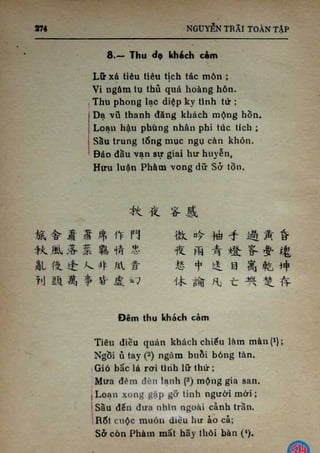 274 NGUYỄN TRÃI TOÀN TẬP
8.— Thu dạ khách cảm
Lữ xá tiêu tiêu tịch tác môn ;
Vi ngâm tụ thủ quá hoàng hôn.
Thu phong lạc diệp ky tình tứ ;
Dạ vũ thanh đăng khách mộng hồn.
Loạn hậu phùng nhân phi túc tích ;
Sầu trung tống mục ngụ càn khôn.
Đáo đầu vạn sự giai hư huyễn,
Hưu luận Phàm vong dữ Sở tồn.
秋夜客感
旅舍蕭蕭席作門 微吟袖手過黃昏
秋風落葉羈情思 夜雨青燈客夢魂
亂後逢人非夙昔 愁中送目寓乾坤
到頭萬事皆虛幻 休論凡亡與楚存
Đêm thu khách cảm
Tiêu điều quán khách chiếu làm màn (¹) ;
Ngồi ủ tay (²) ngâm buổi bóng tàn.
Gió bấc lá rơi tình lữ thứ ;
Mưa đêm đèn lạnh (³) mộng gia san.
Loạn xong gặp gỡ tình người mới ;
Sầu đến đưa nhìn ngoài cảnh trần.
Rốt cuộc muôn điều hư ảo cả;
Sở còn Phàm mất hãy thôi bàn (⁴).